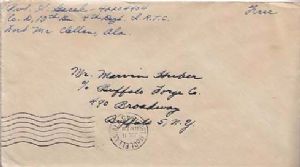 Pvt. G. 42204404 Free
Co. D, 10th Bn 4th Regt I.R.T.C.
Fort Mc Clellan, Ala.
Mr. Marvin Huber
c/o Buffalo Forge Co.
490 Broadway
Buffalo 5, N.Y.